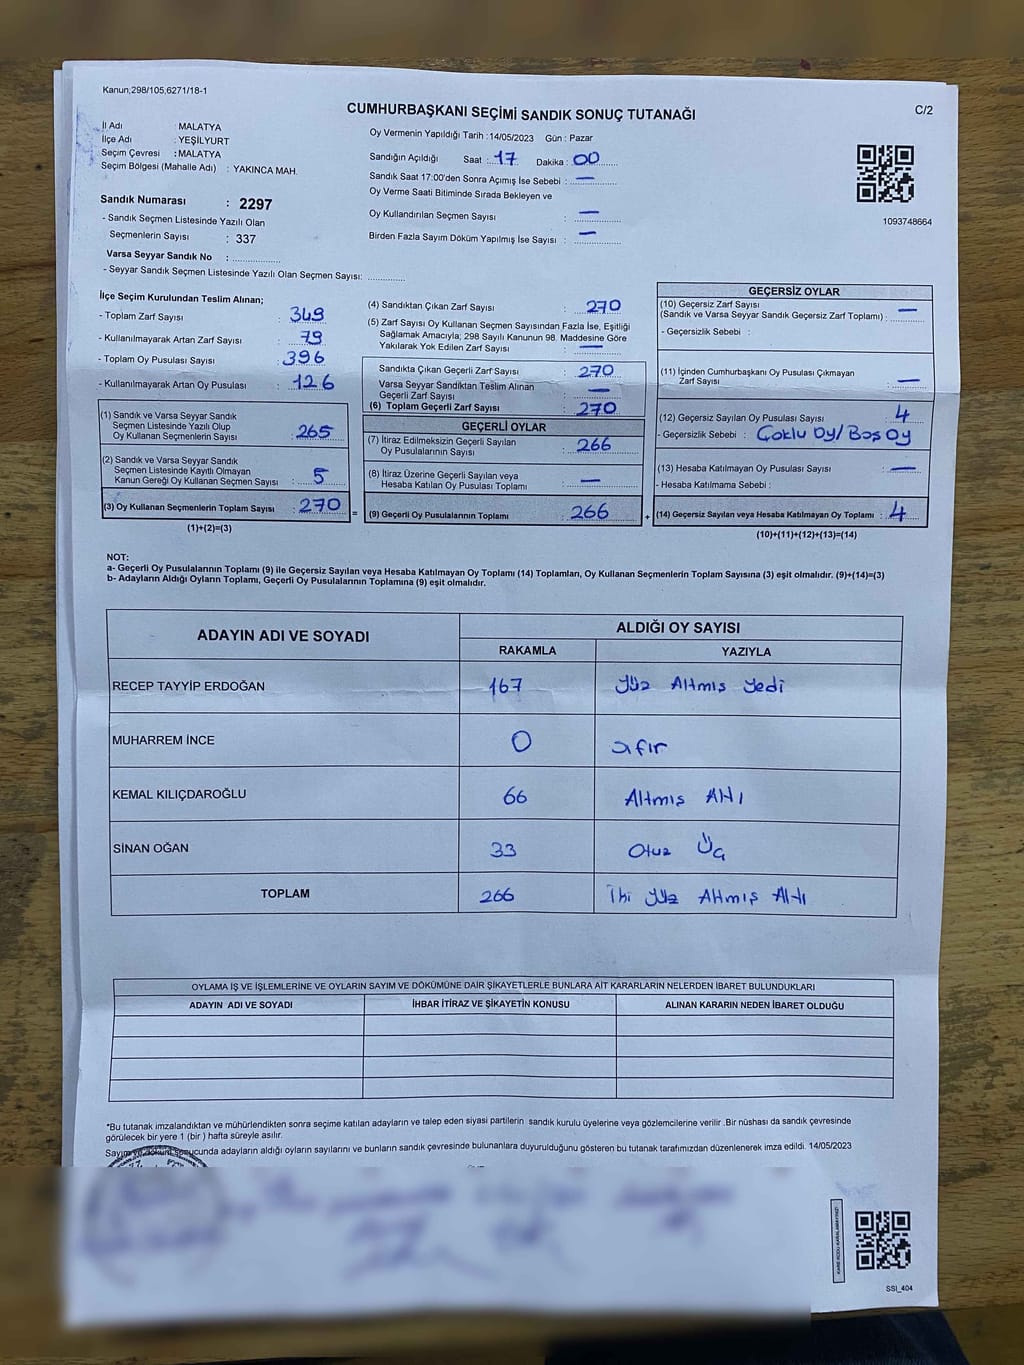 Kanun,298/105,6271/18-1
C/2
CUMHURBAŞKANI SEÇİMİ SANDIK SONUÇ TUTANAĞI
İl Adı : MALATYA
İlçe Adı : YEŞİLYURT
Seçim Çevresi : MALATYA
Seçim Bölgesi (Mahalle Adı) : YAKINCA MAH.
Sandık Numarası : 2297
- Sandık Seçmen Listesinde Yazılı Olan
Seçmenlerin Sayısı : 337
Varsa Seyyar Sandık No : ................
- Seyyar Sandık Seçmen Listesinde Yazılı Olan Seçmen Sayısı: .............
Oy Vermenin Yapıldığı Tarih :14/05/2023 Gün : Pazar
Sandığın Açıldığı Saat : 17 Dakika : 00
Sandık Saat 17:00'den Sonra Açımış İse Sebebi : —
Oy Verme Saati Bitiminde Sırada Bekleyen ve
Oy Kullandırılan Seçmen Sayısı : —
Birden Fazla Sayım Döküm Yapılmış İse Sayısı : —
1093748664
İlçe Seçim Kurulundan Teslim Alınan;
- Toplam Zarf Sayısı : 349
- Kullanılmayarak Artan Zarf Sayısı : 79
- Toplam Oy Pusulası Sayısı : 396
- Kullanılmayarak Artan Oy Pusulası : 126
(1) Sandık ve Varsa Seyyar Sandık
Seçmen Listesinde Yazılı Olup
Oy Kullanan Seçmenlerin Sayısı : 265
(2) Sandık ve Varsa Seyyar Sandık
Seçmen Listesinde Kayıtlı Olmayan
Kanun Gereği Oy Kullanan Seçmen Sayısı : 5
(3) Oy Kullanan Seçmenlerin Toplam Sayısı : 270
(1)+(2)=(3)
=
(4) Sandıktan Çıkan Zarf Sayısı : 270
(5) Zarf Sayısı Oy Kullanan Seçmen Sayısından Fazla İse, Eşitliği
Sağlamak Amacıyla; 298 Sayılı Kanunun 98. Maddesine Göre
Yakılarak Yok Edilen Zarf Sayısı : —
Sandıkta Çıkan Geçerli Zarf Sayısı : 270
Varsa Seyyar Sandıktan Teslim Alınan
Geçerli Zarf Sayısı : —
(6) Toplam Geçerli Zarf Sayısı : 270
GEÇERLİ OYLAR
(7) İtiraz Edilmeksizin Geçerli Sayılan
Oy Pusulalarının Sayısı : 266
(8) İtiraz Üzerine Geçerli Sayılan veya
Hesaba Katılan Oy Pusulası Toplamı : —
(9) Geçerli Oy Pusulalarının Toplamı : 266
+
GEÇERSİZ OYLAR
(10) Geçersiz Zarf Sayısı
(Sandık ve Varsa Seyyar Sandık Geçersiz Zarf Toplamı) : —
- Geçersizlik Sebebi :
(11) İçinden Cumhurbaşkanı Oy Pusulası Çıkmayan
Zarf Sayısı : —
(12) Geçersiz Sayılan Oy Pusulası Sayısı : 4
- Geçersizlik Sebebi : Çoklu Oy/ Boş Oy
(13) Hesaba Katılmayan Oy Pusulası Sayısı : —
- Hesaba Katılmama Sebebi :
(14) Geçersiz Sayılan veya Hesaba Katılmayan Oy Toplamı : 4
(10)+(11)+(12)+(13)=(14)
NOT:
a- Geçerli Oy Pusulalarının Toplamı (9) ile Geçersiz Sayılan veya Hesaba Katılmayan Oy Toplamı (14) Toplamları, Oy Kullanan Seçmenlerin Toplam Sayısına (3) eşit olmalıdır. (9)+(14)=(3)
b- Adayların Aldığı Oyların Toplamı, Geçerli Oy Pusulalarının Toplamına (9) eşit olmalıdır.
ADAYIN ADI VE SOYADI ALDIĞI OY SAYISI
RAKAMLA YAZIYLA
RECEP TAYYİP ERDOĞAN 167 Yüz Altmış Yedi
MUHARREM İNCE 0 sıfır
KEMAL KILIÇDAROĞLU 66 Altmış Altı
SİNAN OĞAN 33 Otuz Üç
TOPLAM 266 İki Yüz Altmış Altı
OYLAMA İŞ VE İŞLEMLERİNE VE OYLARIN SAYIM VE DÖKÜMÜNE DAİR ŞİKAYETLERLE BUNLARA AİT KARARLARIN NELERDEN İBARET BULUNDUKLARI
ADAYIN ADI VE SOYADI İHBAR İTİRAZ VE ŞİKAYETİN KONUSU ALINAN KARARIN NEDEN İBARET OLDUĞU
*Bu tutanak imzalandıktan ve mühürlendikten sonra seçime katılan adayların ve talep eden siyasi partilerin sandık kurulu üyelerine veya gözlemcilerine verilir .Bir nüshası da sandık çevresinde
görülecek bir yere 1 (bir ) hafta süreyle asılır.
Sayım ve döküm sonucunda adayların aldığı oyların sayılarını ve bunların sandık çevresinde bulunanlara duyurulduğunu gösteren bu tutanak tarafımızdan düzenlenerek imza edildi. 14/05/2023
SSİ_404